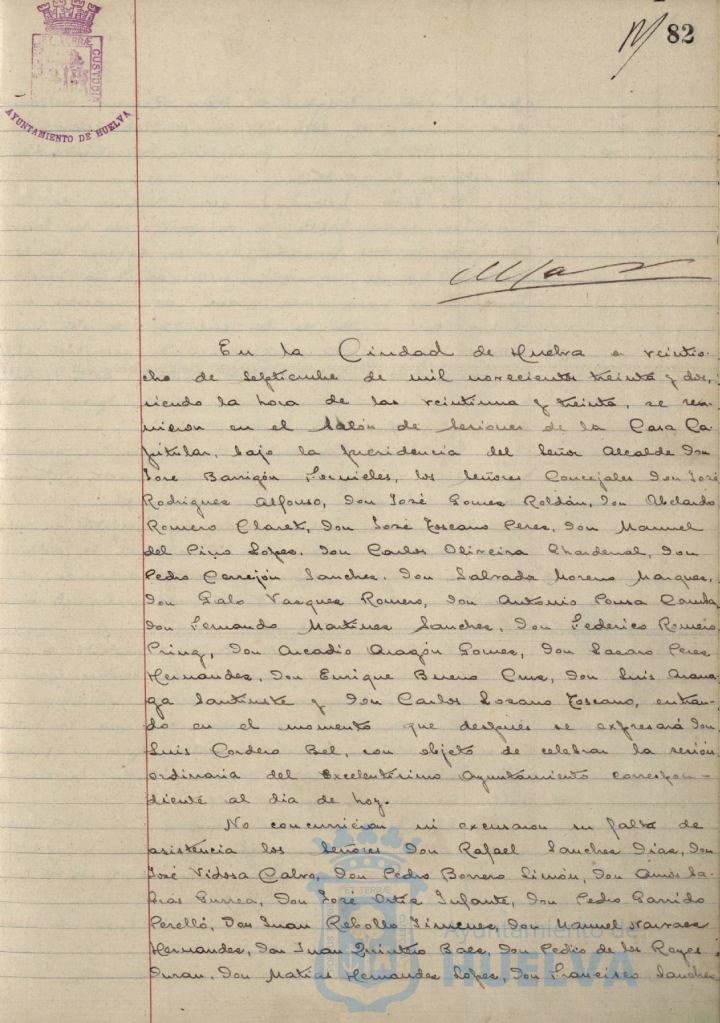 82
ET TERRÆ CUSTODIA
AYUNTAMIENTO DE HUELVA
En la Ciudad de Huelva a veintio-
cho de septiembre de mil novecientos treinta y dos,
siendo la hora de las veintiuna y treinta, se reu-
nieron en el Salón de Sesiones de la Casa Ca-
pitular, bajo la presidencia del Señor Alcalde Don
José Barrigón Fornieles, los Señores Concejales Don José
Rodriguez Alfonso, Don José Gomez Roldán, Don Abelardo
Romero Claret, Don José Toscano Perez, Don Manuel
del Pino Lopez, Don Carlos Oliveira Chardenal, Don
Pedro Cerrejón Sanchez, Don Salvador Moreno Marquez,
Don Galo Vazquez Romero, Don Antonio Pousa Camba
Don Fernando Martinez Sanchez, Don Federico Romero
Pring, Don Arcadio Aragón Gomez, Don Lazaro Perez
Hernandez, Don Enrique Bueno Cruz, Don Luis Arana-
ga Santiuste y Don Carlos Lozano Toscano, entran-
do en el momento que después se expresará Don
Luis Cordero Bel, con objeto de celebrar la sesión
ordinaria del Excelentísimo Ayuntamiento correspon-
diente al dia de hoy.
No concurrieron ni excusaron su falta de
asistencia los Señores Don Rafael Sanchez Diaz, Don
José Vidosa Calvo, Don Pedro Borrero Limón, Don Amós Sa-
brás Gurrea, Don José Ortiz Infante, Don Pedro Garrido
Perelló, Don Juan Rebollo Jimenez, Don Manuel Narvaez
Hernandez, Don Juan Quintero Baez, Don Pedro de los Reyes
Duran, Don Matías Hernandez Lopez, Don Francisco Sanchez
Ayuntamiento de
HUELVA